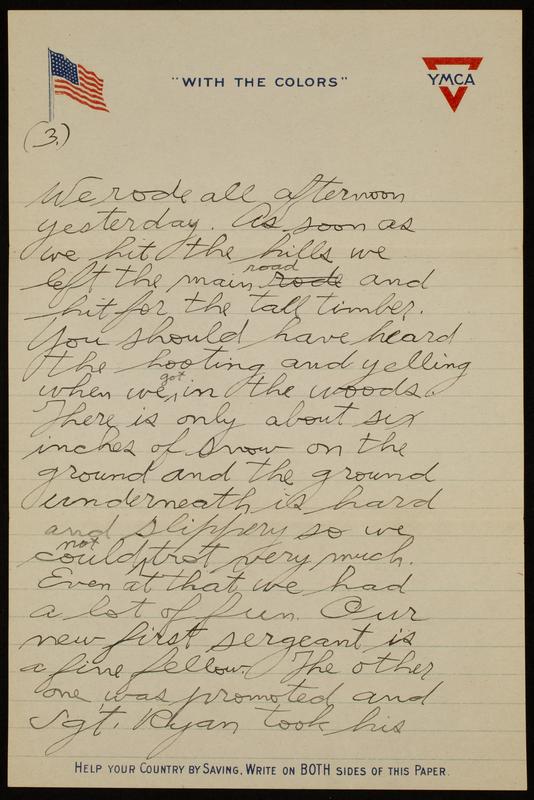 "WITH THE COLORS"
YMCA
(3.)
We rode all afternoon
yesterday. As soon as
we hit the hills we
left the main road rode and
hit for the tall timber.
You should have heard
the hooting and yelling
when we got in the woods.
There is only about six
inches of snow on the
ground and the ground
underneath is hard
and slippery so we
could not trot very much.
Even at that we had
a lot of fun. Our
new first sergeant is
a fine fellow. The other
one was promoted and
Sgt. Ryan took his
HELP YOUR COUNTRY BY SAVING, WRITE ON BOTH SIDES OF THIS PAPER.